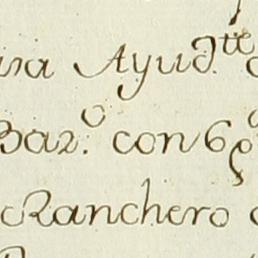 una Ayud.tte
Baz.o con 6
Ranchero